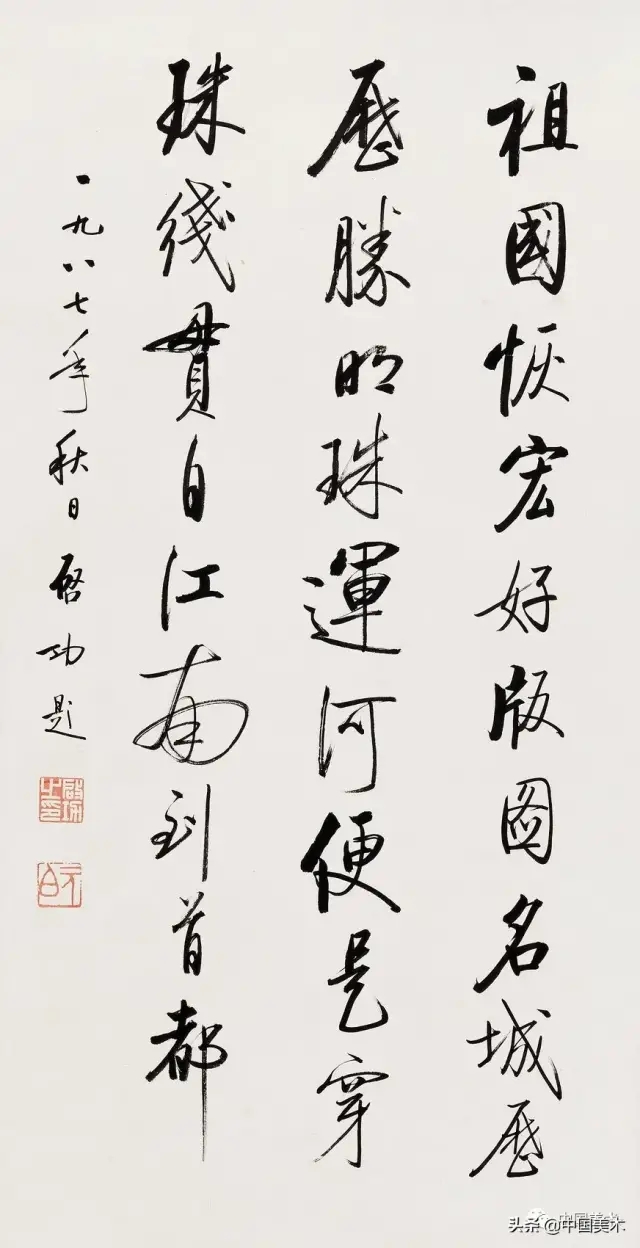 祖國恢宏好版圖名城歷
歷勝明珠運河便是穿
珠綫貫自江南到首都
一九八七年秋日啓功題
啟功之印
元白
中国美术
头条 @中国美术